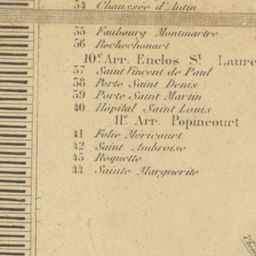 34 Chaussée d'Antin
35 Faubourg Montmartre
36 Rochechouart
10e Arr. Enclos St. Laure
37 Saint Vincent de Paul
38 Porte Saint Denis
39 Porte Saint Martin
40 Hôpital Saint Louis
11e Arr. Popincourt
41 Folie Méricourt
42 Saint Ambroise
43 Roquette
44 Sainte Marguerite